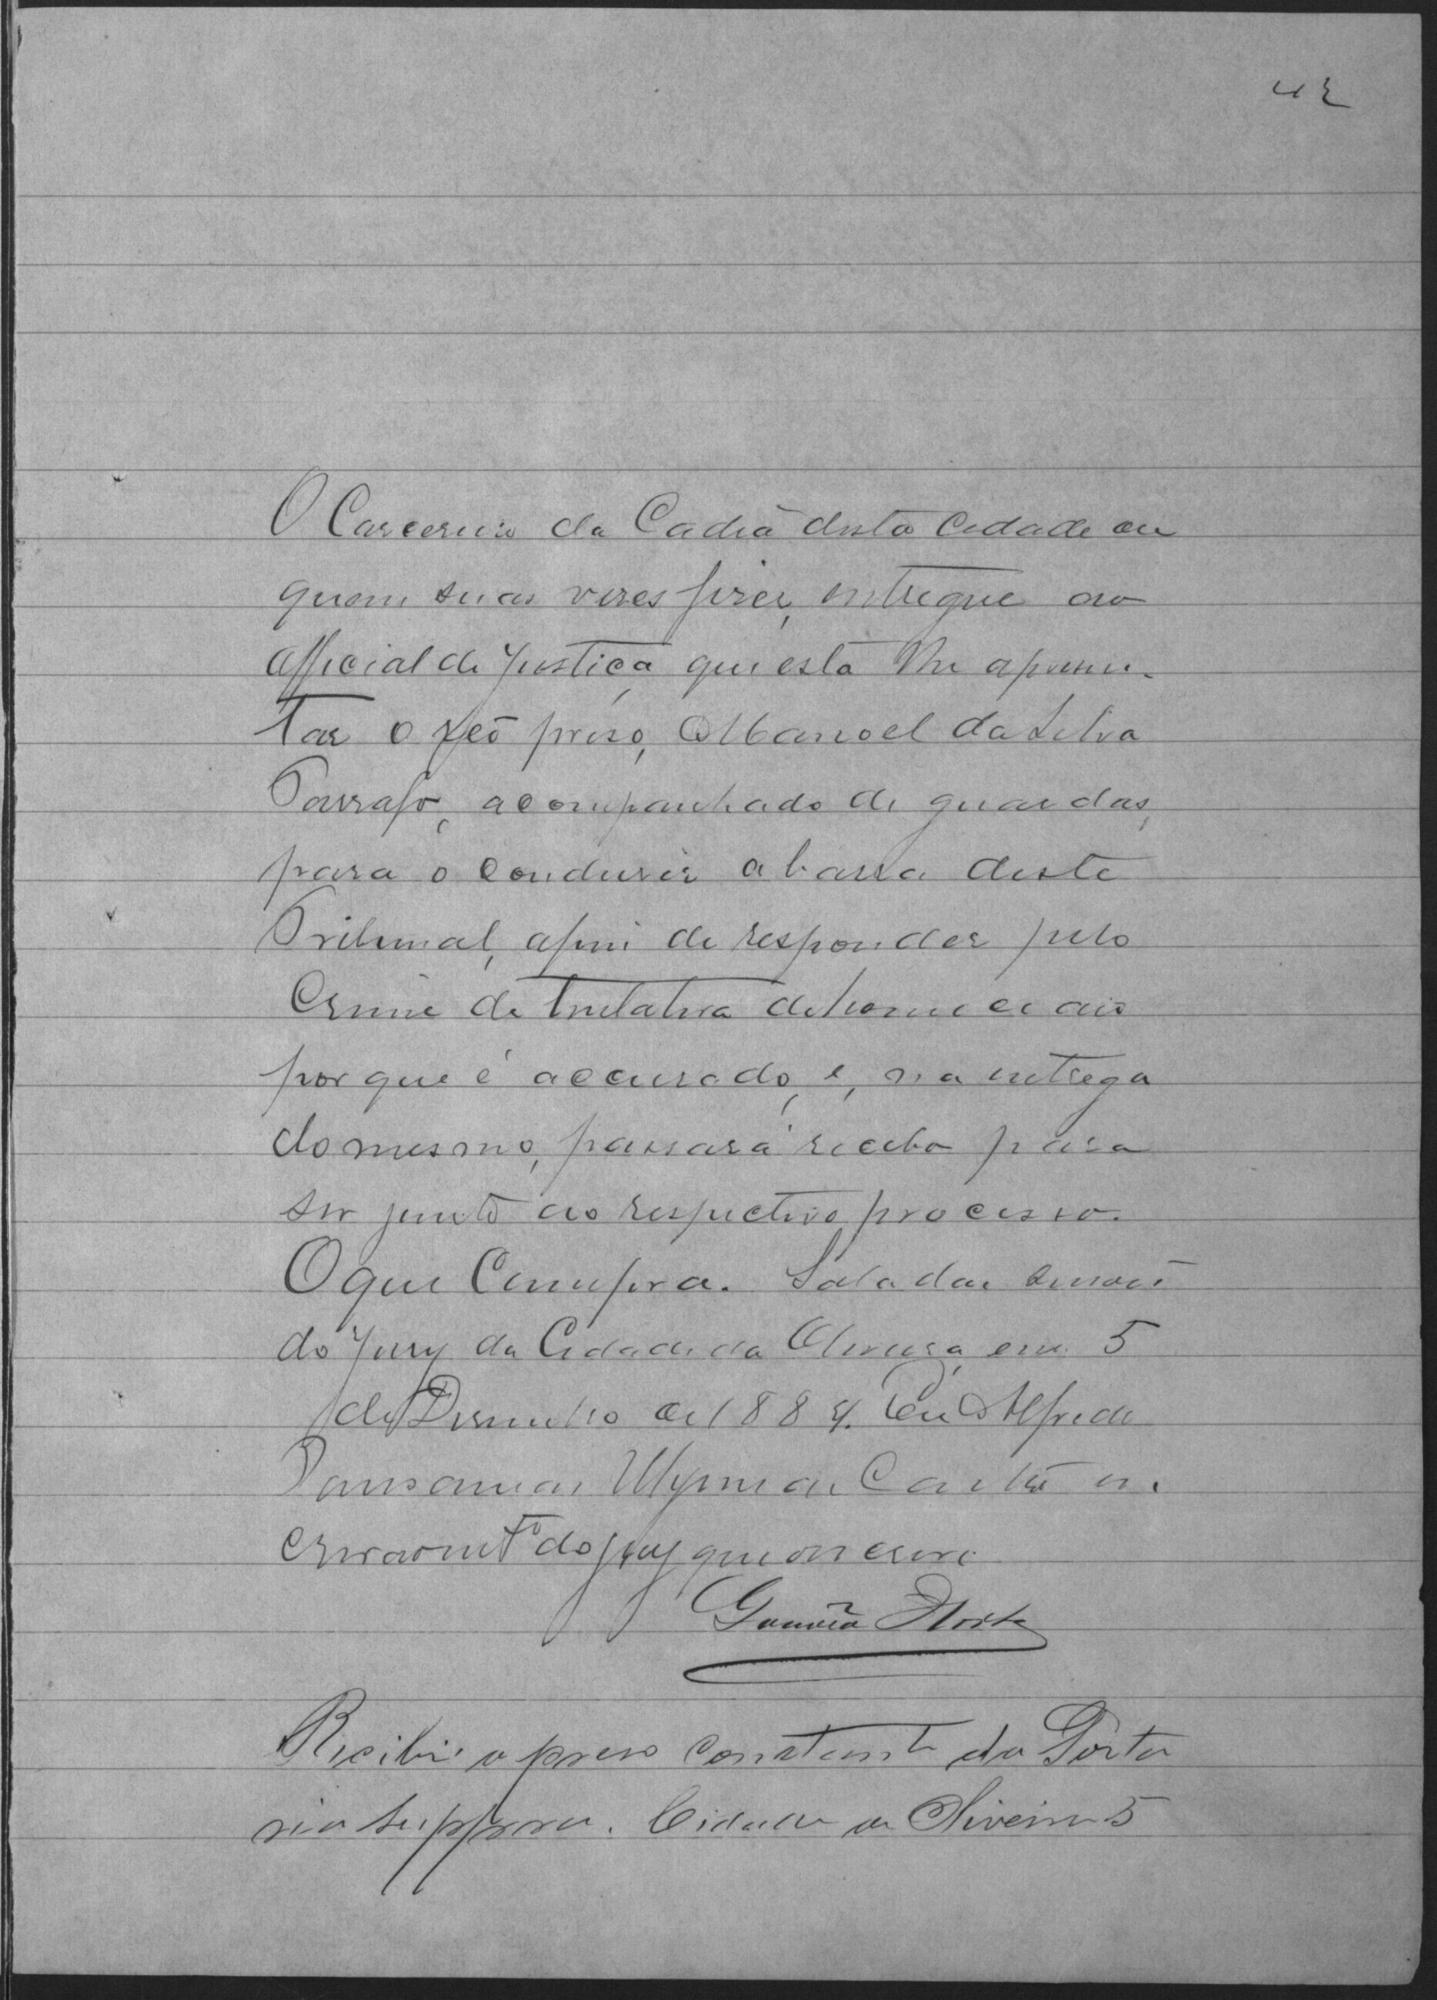 42
O Carcereiro da Cadeia desta Cidade ou
quem suas vezes fizer, entregue ao
Official de Justiça que esta lhe apresen-
tar o reo preso, Manoel da Silva
acompanhado de guardas,
para o conduzir a barra deste
Tribunal, afim de responder pelo
Crime de tentativa de homicidio
por que é accusado, e, na entrega
do mesmo, passará recibo para
ser junto ao respectivo processo.
O que Cumpra. Sala das sessões
do Jury da Cidade da Oliveira, em 5
de Dezembro de 1884. Eu Alfredo
do Jury que o escrevi
Gouvêa Horta
Recibi o preso constante da Porta
ria suppra. Cidade de Oliveira 5